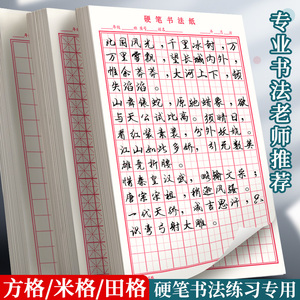 硬笔书法纸
北国风光，千里冰封，万
万里雪飘，望长城内外，
惟余莽莽，大河上下，顿
失滔滔。
山舞银蛇，原驰蜡象，欲
与天公试比高。须晴日，
看红装素裹，分外妖娆。
江山如此多娇，引无数英
雄竞折腰。
惜秦皇汉武，略输文采；
唐宗宋祖，稍逊风骚。
一代天骄，成吉思汗，只
识弯弓射大雕。
专业书法老师推荐
方格/米格/田格
硬笔书法练习专用